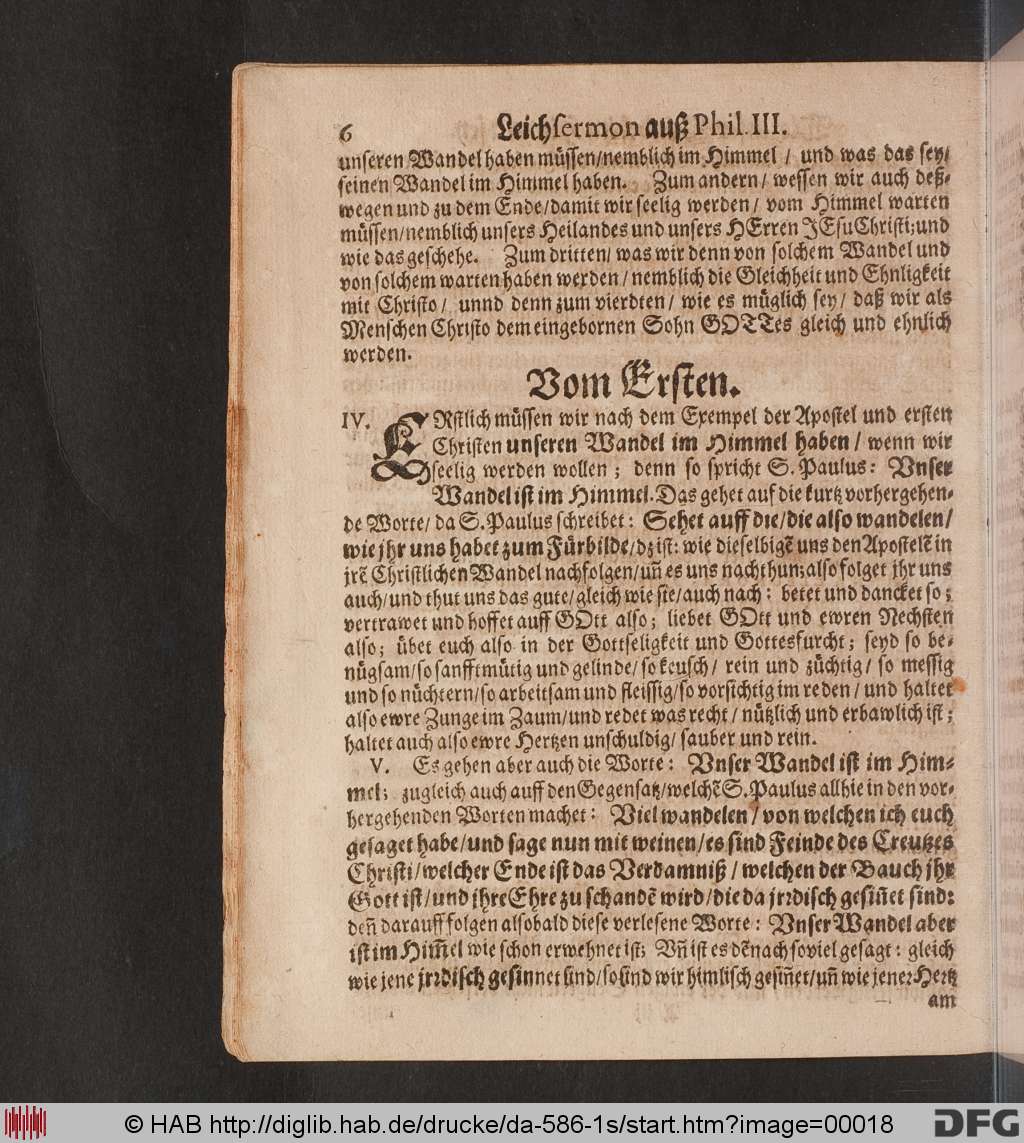 6 Leichſermon auß Phil. III.
unſeren Wandel haben müſſen/nemblich im Himmel / und was das ſey/
ſeinen Wandel im Himmel haben. Zum andern/ weſſen wir auch deß-
wegen und zu dem Ende/damit wir ſeelig werden/ vom Himmel warten
müſſen/nemblich unſers Heilandes und unſers HErren JEſu Chriſti; und
wie das geſchehe. Zum dritten/ was wir denn von ſolchem Wandel und
von ſolchem warten haben werden/ nemblich die Gleichheit und Ehnligkeit
mit Chriſto/ unnd denn zum vierdten/ wie es müglich ſey/ daß wir als
Menſchen Chriſto dem eingebornen Sohn GOTTes gleich und ehnlich
werden.
Vom Erſten.
IV. ERſtlich müſſen wir nach dem Exempel der Apoſtel und erſten
Chriſten unſeren Wandel im Himmel haben / wenn wir
ſeelig werden wollen; denn ſo ſpricht S. Paulus: Vnſer
Wandel iſt im Himmel. Das gehet auf die kurtz vorhergehen-
de Worte/ da S. Paulus ſchreibet: Sehet auff die/die alſo wandelen/
wie jhr uns habet zum Fürbilde/dz iſt: wie dieſelbigẽ uns den Apoſtelẽ in
jrẽ Chriſtlichen Wandel nachfolgen/uñ es uns nachthun; alſo folget jhr uns
auch/und thut uns das gute/gleich wie ſie/auch nach: betet und dancket ſo;
vertrawet und hoffet auff GOtt alſo; liebet GOtt und ewren Nechſten
alſo; übet euch alſo in der Gottſeligkeit und Gottesfurcht; ſeyd ſo be-
nügſam/ſo ſanfftmütig und gelinde/ ſo keuſch/ rein und züchtig/ ſo meſſig
und ſo nüchtern/ſo arbeitſam und fleiſſig/ſo vorſichtig im reden / und haltet
alſo ewre Zunge im Zaum/und redet was recht / nützlich und erbawlich iſt;
haltet auch alſo ewre Hertzen unſchuldig/ ſauber und rein.
V. Es gehen aber auch die Worte: Vnſer Wandel iſt im Him-
mel; zugleich auch auff den Gegenſatz/welchẽ S. Paulus allhie in den vor-
hergehenden Worten machet: Viel wandelen/von welchen ich euch
geſaget habe/und ſage nun mit weinen/es ſind Feinde des Creutzes
Chriſti/welcher Ende iſt das Verdamniß / welchen der Bauch jhr
Gott iſt/und jhre Ehre zu ſchandẽ wird/die da jrꝛdiſch geſiñet ſind:
deñ darauff folgen alſobald dieſe verleſene Worte: Vnſer Wandel aber
iſt im Him̃el wie ſchon erwehnet iſt: Vñ iſt es dẽnach ſoviel geſagt: gleich
wie jene jrꝛdiſch geſinnet ſind/ſo ſind wir himliſch geſiñet/uñ wie jener Hertz
am
© HAB http://diglib.hab.de/drucke/da-586-1s/start.htm?image=00018
DFG